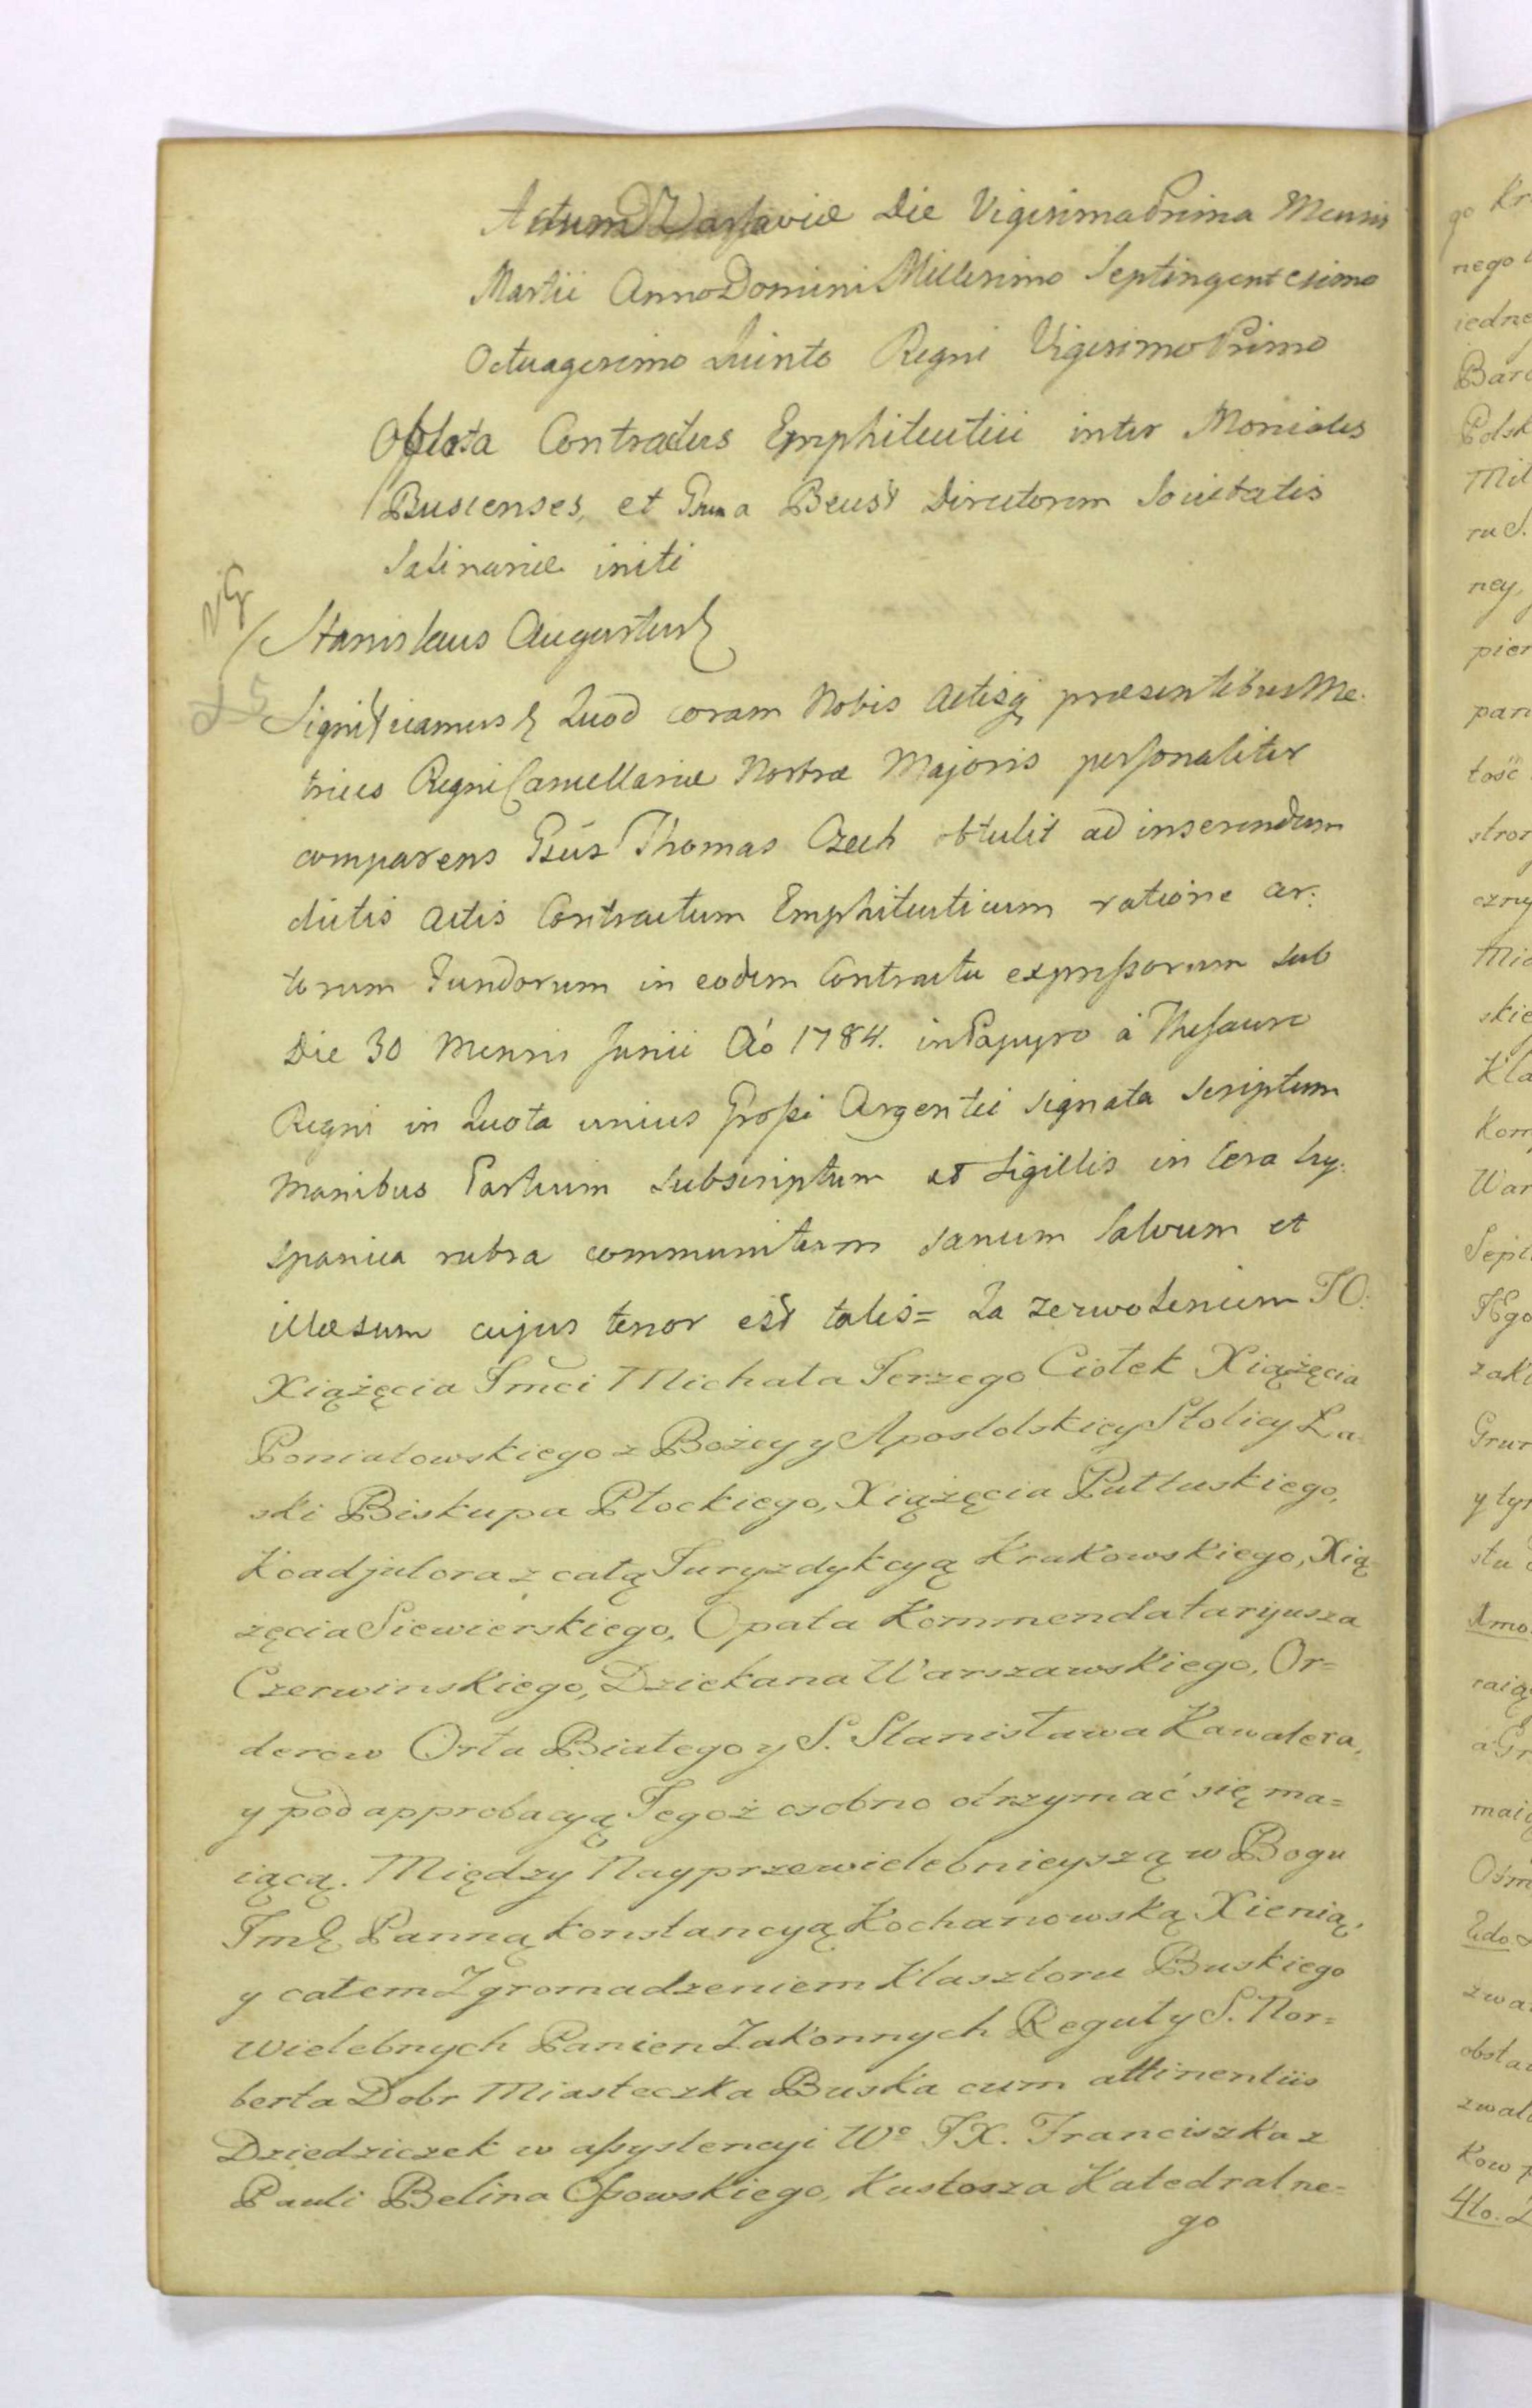 Actum Varsaviæ Die Vigesima Prima Mensis
Martii Anno Domini Millesimo Septingentesimo
Octuagesimo Quinto Regni Vigesimo Primo
Oblata Contractus Emphiteutici inter Moniales
Buscenses, et Beust Directorem Societatis
Salinariæ initi
Stanislaus Augustus
Significamus Quod coram Nobis Actisq præsentibus Me.
trices Regni Cancellariæ Nostræ Majoris personaliter
comparens Thomas Czech obtulit ad inserendum
dictis Actis Contractum Emphiteuticum ratione cer:
torum Fundorum in eodem Contractu expressorum sub
Die 30 Mensis Junii Aõ 1784. in Papyro à Thesauro
Regni in Quota unius Grossi Argentei signata scriptum
Manibus Partium subscriptum et Sigillis in Cera hy:
spanica rubra communitum sanum Salvum et
illæsum cujus tenor est talis= Za zezwoleniem JO.
Xiążęcia Jmci Michała Jerzego Ciołek Xiążęcia
Poniatowskiego z Bożey y Apostolskiey Stolicy Ła
ski Biskupa Płockiego, Xiążęcia Pułtuskiego,
Koadjutora z całą Juryzdykcyą Krakowskiego, Xią
żęcia Siewierskiego, Opata Kommendataryusza
Czerwinskiego, Dziekana Warszawskiego, Or=
derow Orła Białego y S. Stanisława Kawalera,
y pod approbacyą Jegoż osobno otrzymać się ma=
iącą. Między Nayprzewielebnieyszą w Bogu
Jmę Panną Konstancyą Kochanowską Xienią,
y całem Zgromadzeniem Klasztoru Buskiego
Wielebnych Panien Zakonnych Reguły S. Nor=
berta Dobr Miasteczka Buska cum attinentiis
Dziedziczek w assystencyi Wo JX. Franciszka z
Pauli Belina Ossowskiego, Kustosza Katedralne=
go